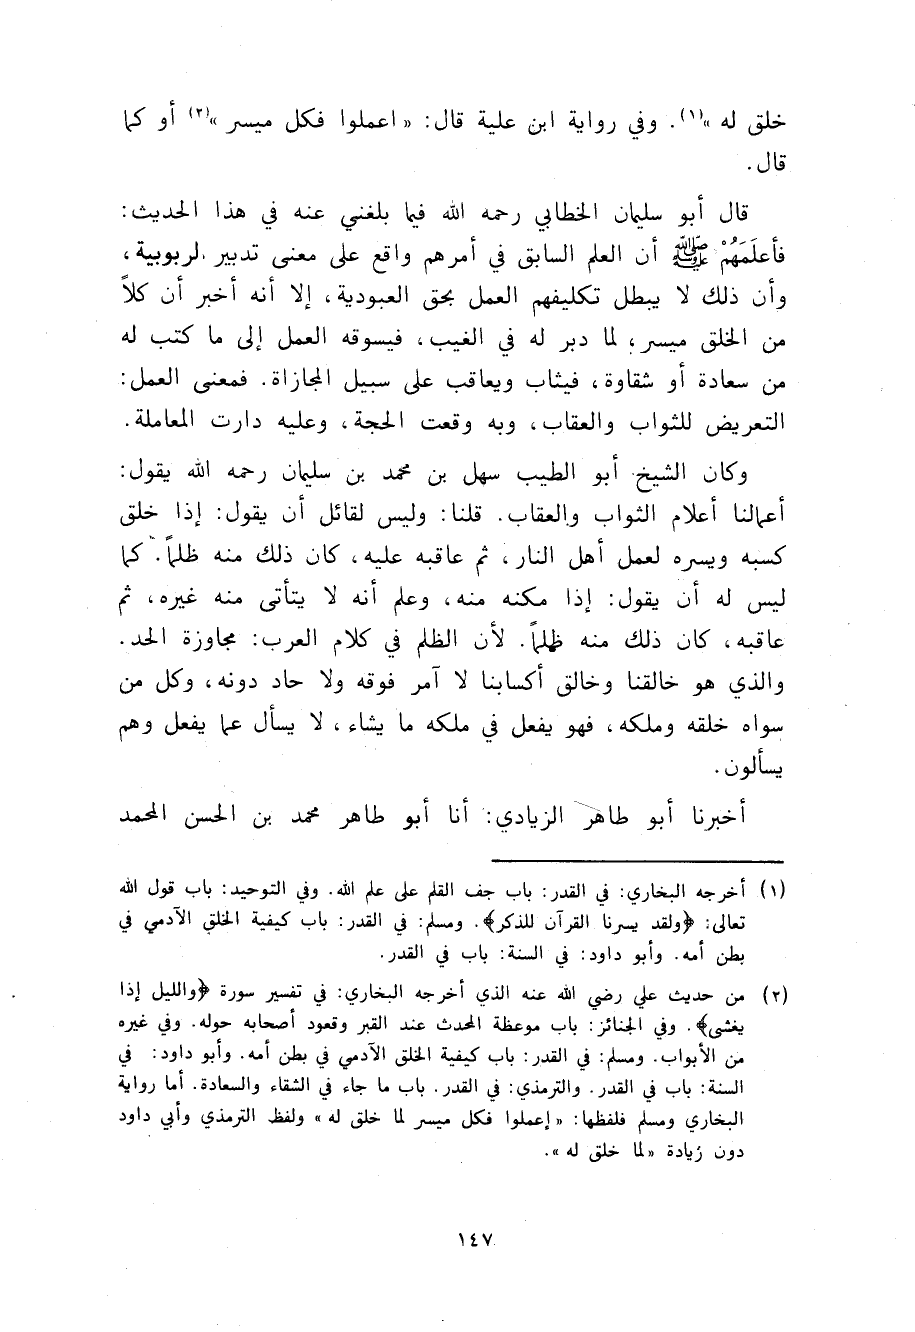 خلق له »(١). وفي رواية ابن علية قال: « اعملوا فكل ميسر »(٢) أو كما
قال.
قال أبو سليمان الخطابي رحمه الله فيما بلغني عنه في هذا الحديث:
فأعلَمَهُمْ ﷺ أن العلم السابق في أمرهم واقع على معنى تدبير الربوبية،
وأن ذلك لا يبطل تكليفهم العمل بحق العبودية، إلا أنه أخبر أن كلاً
من الخلق ميسر، لما دبر له في الغيب، فيسوقه العمل إلى ما كتب له
من سعادة أو شقاوة، فيثاب ويعاقب على سبيل المجازاة. فمعنى العمل:
التعريض للثواب والعقاب، وبه وقعت الحجة، وعليه دارت المعاملة.
وكان الشيخ أبو الطيب سهل بن محمد بن سليمان رحمه الله يقول:
أعمالنا أعلام الثواب والعقاب. قلنا: وليس لقائل أن يقول: إذا خلق
كسبه ويسره لعمل أهل النار، ثم عاقبه عليه، كان ذلك منه ظلماً. كما
ليس له أن يقول: إذا مكنه منه، وعلم أنه لا يتأتى منه غيره، ثم
عاقبه، كان ذلك منه ظلماً. لأن الظلم في كلام العرب: مجاوزة الحد.
والذي هو خالقنا وخالق أكسابنا لا آمر فوقه ولا حاد دونه، وكل من
سواه خلقه وملكه، فهو يفعل في ملكه ما يشاء، لا يسأل عما يفعل وهم
يسألون.
أخبرنا أبو طاهر الزيادي: أنا أبو طاهر محمد بن الحسن المحمد
(١) أخرجه البخاري: في القدر: باب جف القلم على علم الله. وفي التوحيد: باب قول الله
تعالى: ﴿ولقد يسرنا القرآن للذكر﴾. ومسلم: في القدر: باب كيفية الخلق الآدمي في
بطن أمه. وأبو داود: في السنة: باب في القدر.
(٢) من حديث علي رضي الله عنه الذي أخرجه البخاري: في تفسير سورة ﴿والليل إذا
يغشى﴾. وفي الجنائز: باب موعظة المحدث عند القبر وقعود أصحابه حوله. وفي غيره
من الأبواب. ومسلم: في القدر: باب كيفية الخلق الآدمي في بطن أمه. وأبو داود: في
السنة: باب في القدر. والترمذي: في القدر. باب ما جاء في الشقاء والسعادة. أما رواية
البخاري ومسلم فلفظها: « إعملوا فكل ميسر لما خلق له » ولفظ الترمذي وأبي داود
دون زيادة « لما خلق له ».
١٤٧